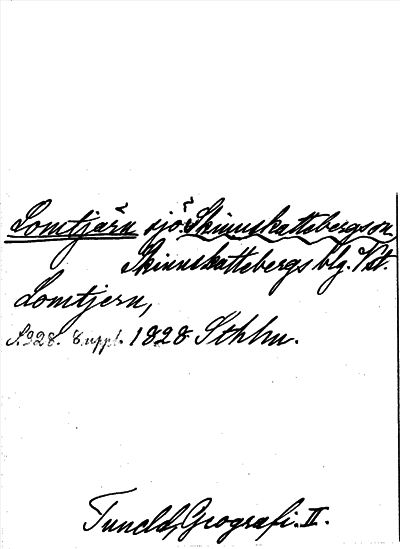 Lomtjärn sjö. Skinnskattebergs sn
Skinnskattebergs blg. Vst.
Lomtjern,
S. 328. 8. uppl. 1828 Sthlm.
Tuneld, Geografi. II.